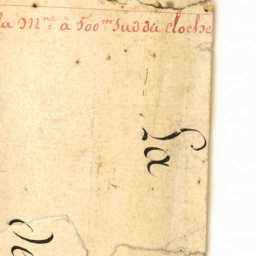 la M.ne à 500.m Sud du cloche
La
de